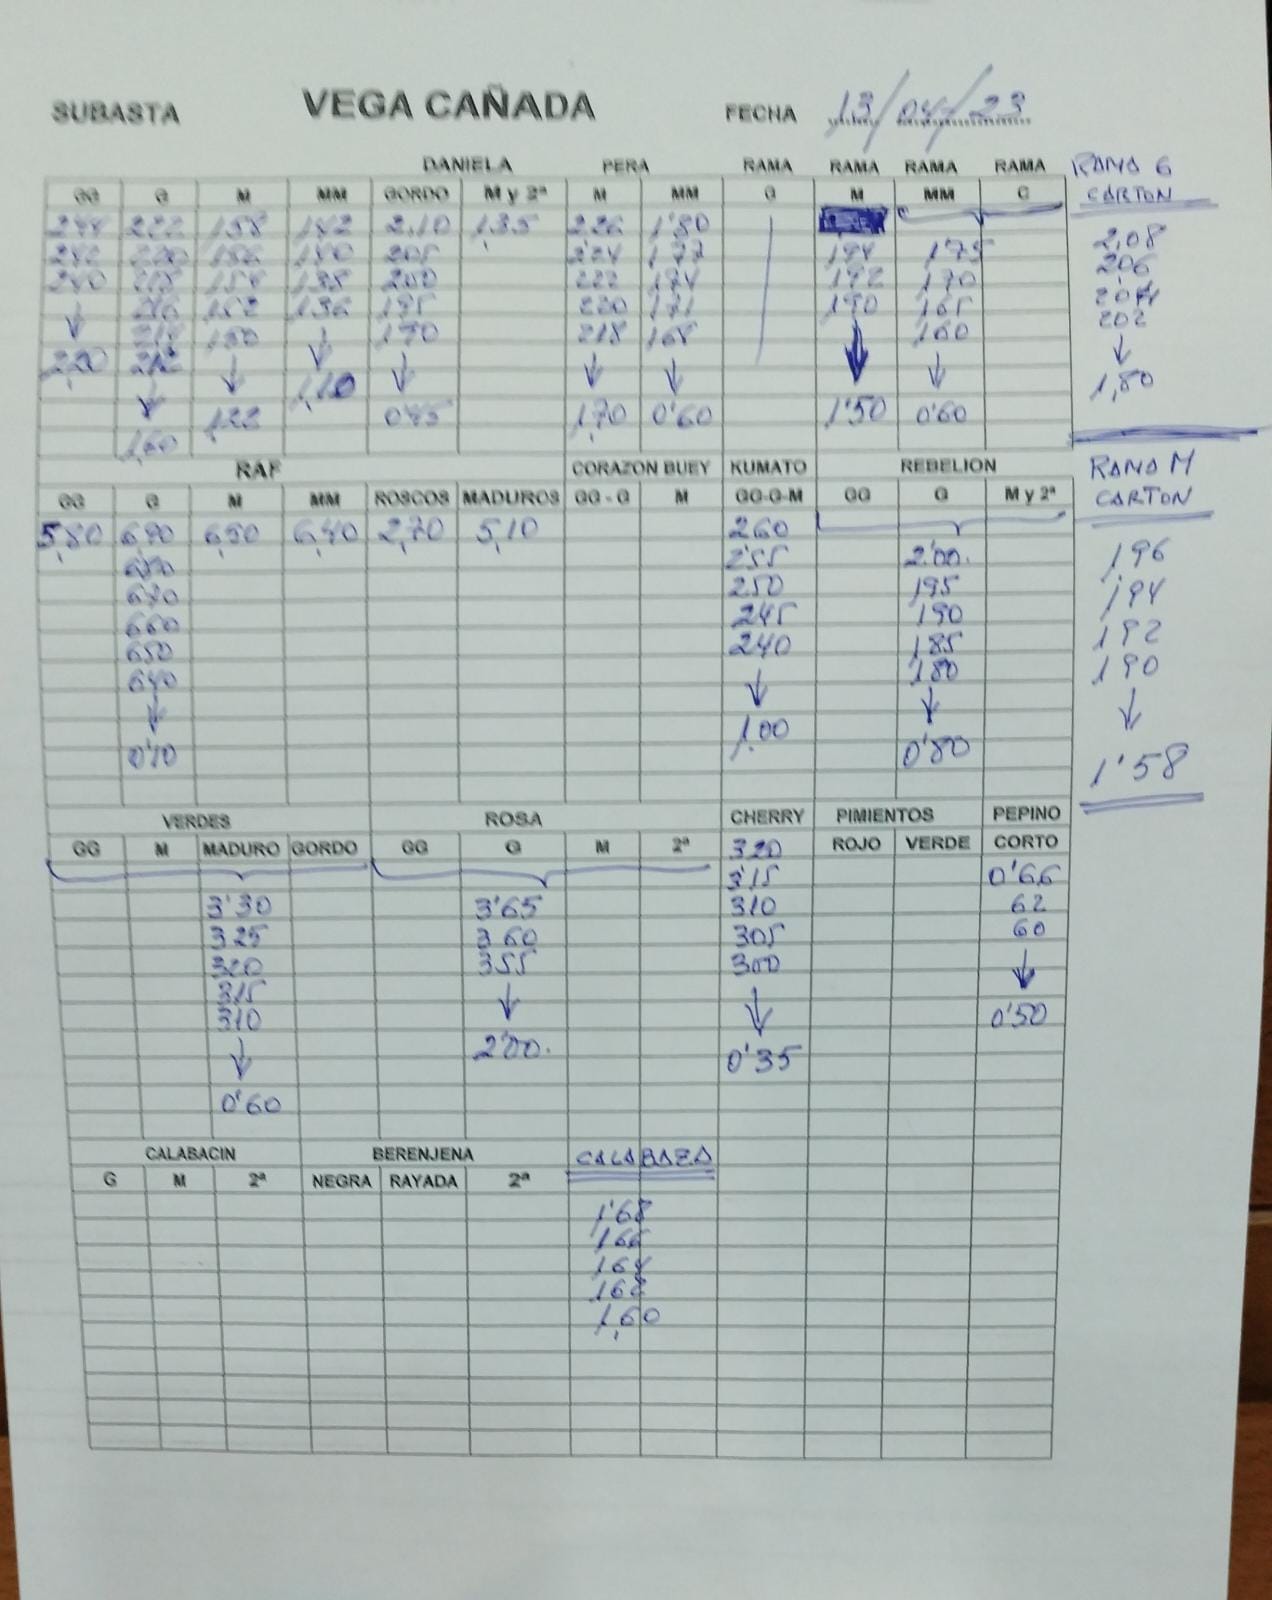 SUBASTA VEGA CAÑADA FECHA 13/04/23
DANIELA PERA RAMA RAMA RAMA RAMA RAMA G
GG G M MM GORDO M y 2ª M MM G M MM C CARTON
244 222 158 142 2,10 1,35 226 1'80 2,08
242 220 156 140 205 224 177 194 1'75 206
240 218 154 138 200 222 174 192 170 204
216 152 136 195 220 171 190 165 202
↓ 214 150 ↓ 190 218 168 ↓ 160 ↓
2,20 212 ↓ 1,10 ↓ ↓ ↓ ↓ 1,80
↓ 1,22 0'45 1,70 0'60 1'50 0'60
1,60
RAF CORAZON BUEY KUMATO REBELION RAMA M
GG G M MM ROSCOS MADUROS GG - G M GG-G-M GG G M y 2ª CARTON
5,80 6,90 6,50 6,40 2,70 5,10 260
680 2'55 2'00. 1,96
670 250 195 194
660 245 190 192
650 240 185 190
640 ↓ 180 ↓
↓ 1,00 ↓ 1'58
0'70 0'80
VERDES ROSA CHERRY PIMIENTOS PEPINO
GG M MADURO GORDO GG G M 2ª 320 ROJO VERDE CORTO
3'15 0'66
3'30 3'65 310 62
325 360 305 60
320 355 300 ↓
315 ↓ ↓ 0'50
310 2'00. 0'35
↓
0'60
CALABACIN BERENJENA CALABAZA
G M 2ª NEGRA RAYADA 2ª
1'68
166
164
162
1,60